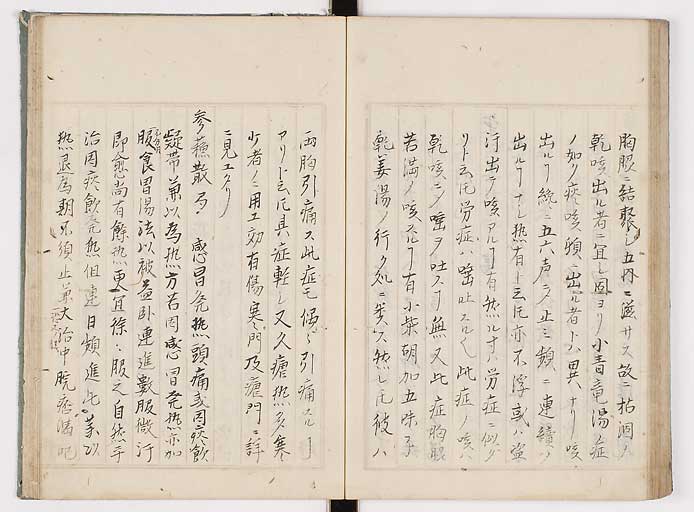 胸膈ニ結聚シ五内ニ滋サス故ニ枯涸ノ
乾咳出ル者ニ宜シ因ヨリ小青竜湯ノ症
ノ如ク痰咳頻ニ出ル者トハ異ナリ咳
出ルヿ纔ニ五六声ニ乄止ミ頻ニ連續
出ルヿナシ熱有ト云𪜈亦不浮或ハ
汗出テ咳アルヿ有然ルキハ労症ニ似
リト云𪜈労症ハ唾吐スル此症ノ咳ハ
乾咳ニ乄唾ヲ吐スヿ無又此症胸膈
苦満ノ咳アルヿ有小柴胡加五味子
乾姜湯ノ行ク処ニ類ス然レ𪜈彼ハ
両胸引痛ス此症モ偶引痛スルヿ
アリト云𪜈其症軽シ又久瘧熱多寒
少者ノニ用エ効有傷寒門及瘧門ニ詳
ニ見エタリ
参蘇散 感冒発熱頭痛或因痰飲
凝滞兼以為熱方若因感冒発熱亦如
服養胃湯法以被蓋卧連進數服微汗
即愈尚有餘熱更宜徐々服之自然平
治因痰飲発熱但連日頻進此薬以
熱退為期不須止薬大治中脘痞満